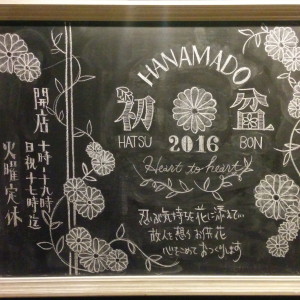 HANAMADO
初盆
HATSU 2016 BON
Heart to heart
思いと気持ちを花に添えて…
故人を想うお供花
心をこめておつくりします
開店 十時〜十九時
日祝 十七時迄
火曜定休